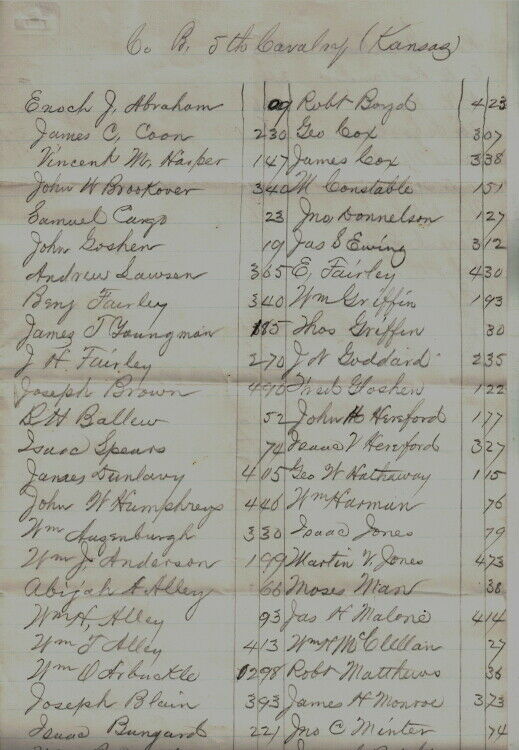 Co B. 5th Cavalry (Kansas)
Enoch J. Abraham 09 Robt Boyd 4 23
James C. Coon 2 30 Geo Cox 3 07
Vincent M. Harper 1 47 James Cox 3 38
John W Brookover 3 40 M Constable 1 51
Samuel Cargo 23 Jno Donnelson 1 27
John Goshen 19 Jas S Ewing 3 12
Andrew Lawsen 3 65 E, Fairley 4 30
Benj Fairley 3 40 Wm Griffin 1 93
James T Youngman 1 85 Thos Griffin 30
J H. Fairley 2 70 J N Goddard 2 35
Joseph Brown 4 90 Fred Goshen 1 22
B H Ballew 52 John H Hereford 1 77
Isaac Spears 74 Isaac V Hereford 3 27
James Dunlavy 4 05 Geo W Hathaway 1 15
John W Humphreys 4 40 Wm Harman 76
Wm Augenburgh 3 30 Isaac Jones 79
Wm J. Anderson 1 99 Martin V. Jones 4 73
Abijah A Alley 66 Moses Man 38
Wm H, Alley 93 Jas H Malone 4 14
Wm T Alley 4 13 Wm H McClellan 27
Wm O Arbuckle 2 98 Robt Matthews 36
Joseph Blain 3 93 James H Monroe 3 73
Isaac Bungard 2 21 Jno C Minter 74